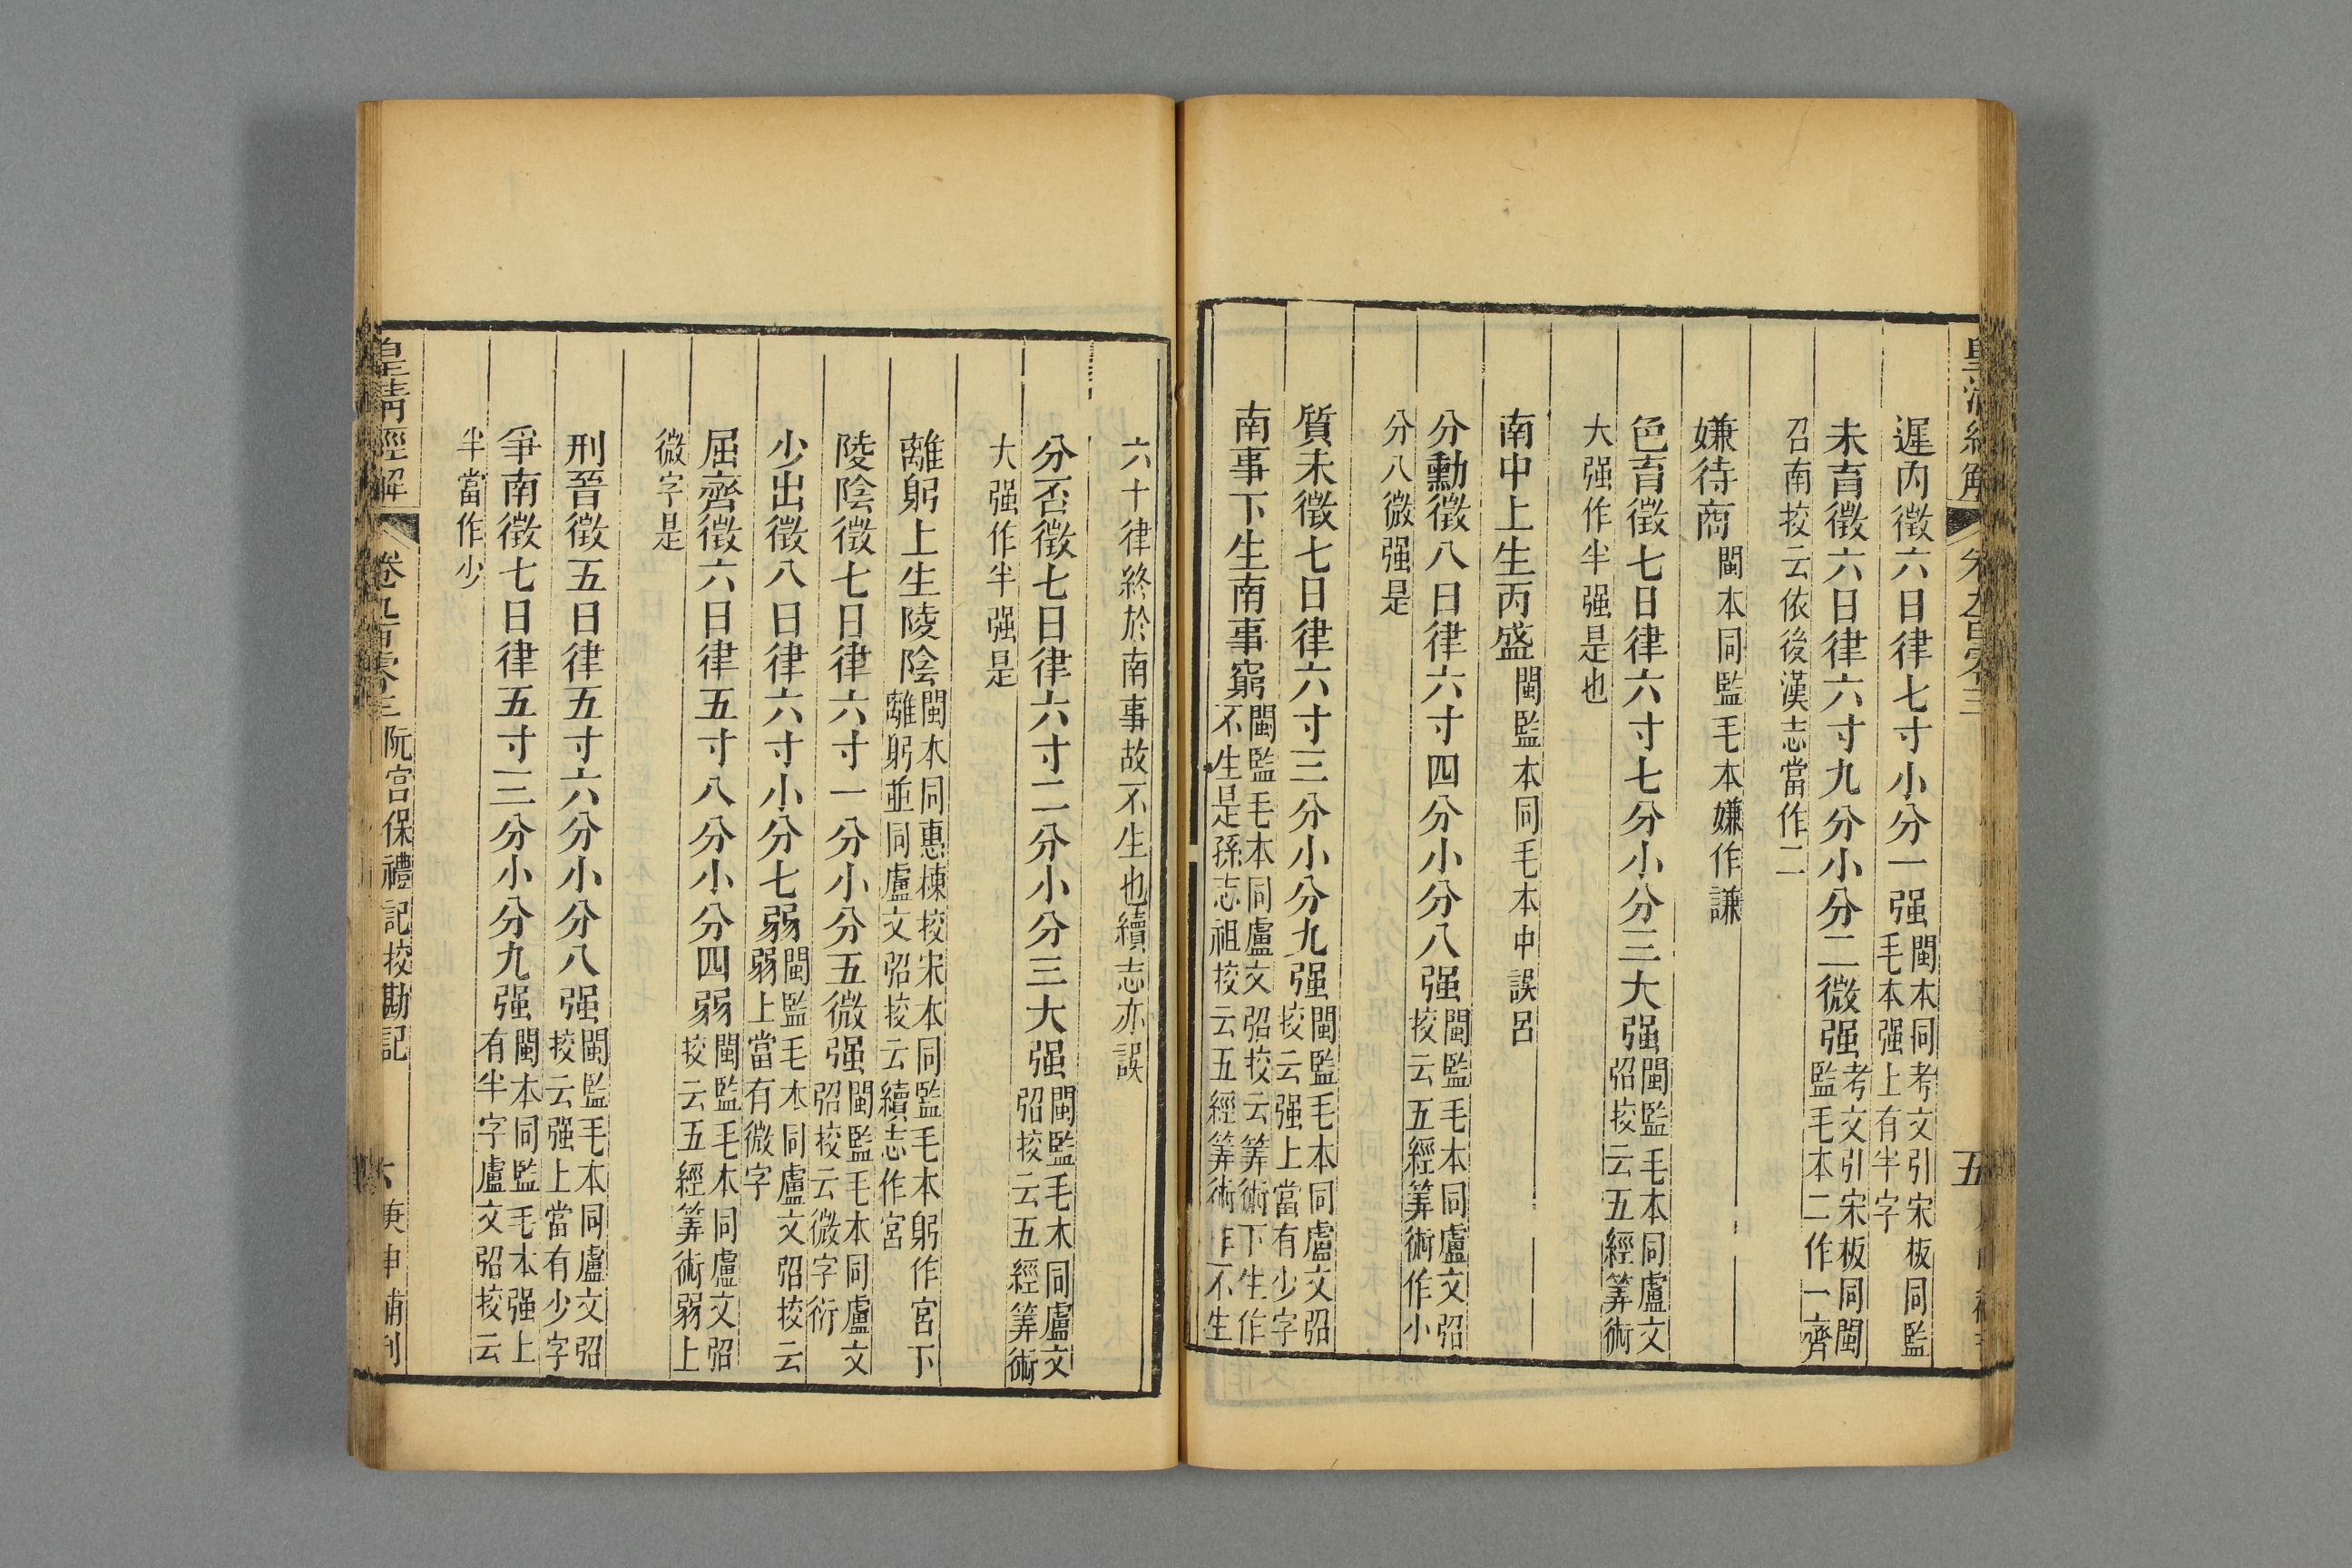 遲內徵六日律七寸小分一强閩本同考文引宋板同監
毛本强上有半字
未育徵六日律六寸九分小分二微强考文引宋板同閩
監毛本二作一齊
召南挍云依後漢志當作二
嫌待商閩本同監毛本嫌作謙
色育徵七日律六寸七分小分三大强閩監毛本同盧文
弨挍云五經筭術
大强作半强是也
南中上生丙盛閩監本同毛本中誤呂
分動徵八日律六寸四分小分八强閩監毛本同盧文弨
挍云五經筭術作小
分八微强是
質未徵七日律六寸三分小分九强閩監毛本同盧文弨
挍云强上當有少字
南事下生南事窮閩監毛本同盧文弨挍云筭術下生作
不生是孫志祖挍云五經筭術作不生
六十律終於南事故不生也續志亦誤
分否徵七日律六寸二分小分三大强閩監毛本同盧文
弨挍云五經筭術
大强作半强是
離躬上生陵陰閩本同惠棟挍宋本同監毛本躬作宮下
離躬並同盧文弨挍云續志作宮
陵陰徵七日律六寸一分小分五微强閩監毛本同盧文
弨挍云微字衍
少出徵八日律六寸小分七弱閩監毛本同盧文弨挍云
弱上當有微字
屈齊徵六日律五寸八分小分四弱閩監毛本同盧文弨
挍云五經筭術弱上
微字是
刑晉徵五日律五寸六分小分八强閩監毛本同盧文弨
挍云强上當有少字
爭南徵七日律五寸三分小分九强閩本同監毛本强上
有半字盧文弨挍云
半當作少
皇清經解
卷九百零三
阮宮保禮記挍勘記
六
庚申補刊